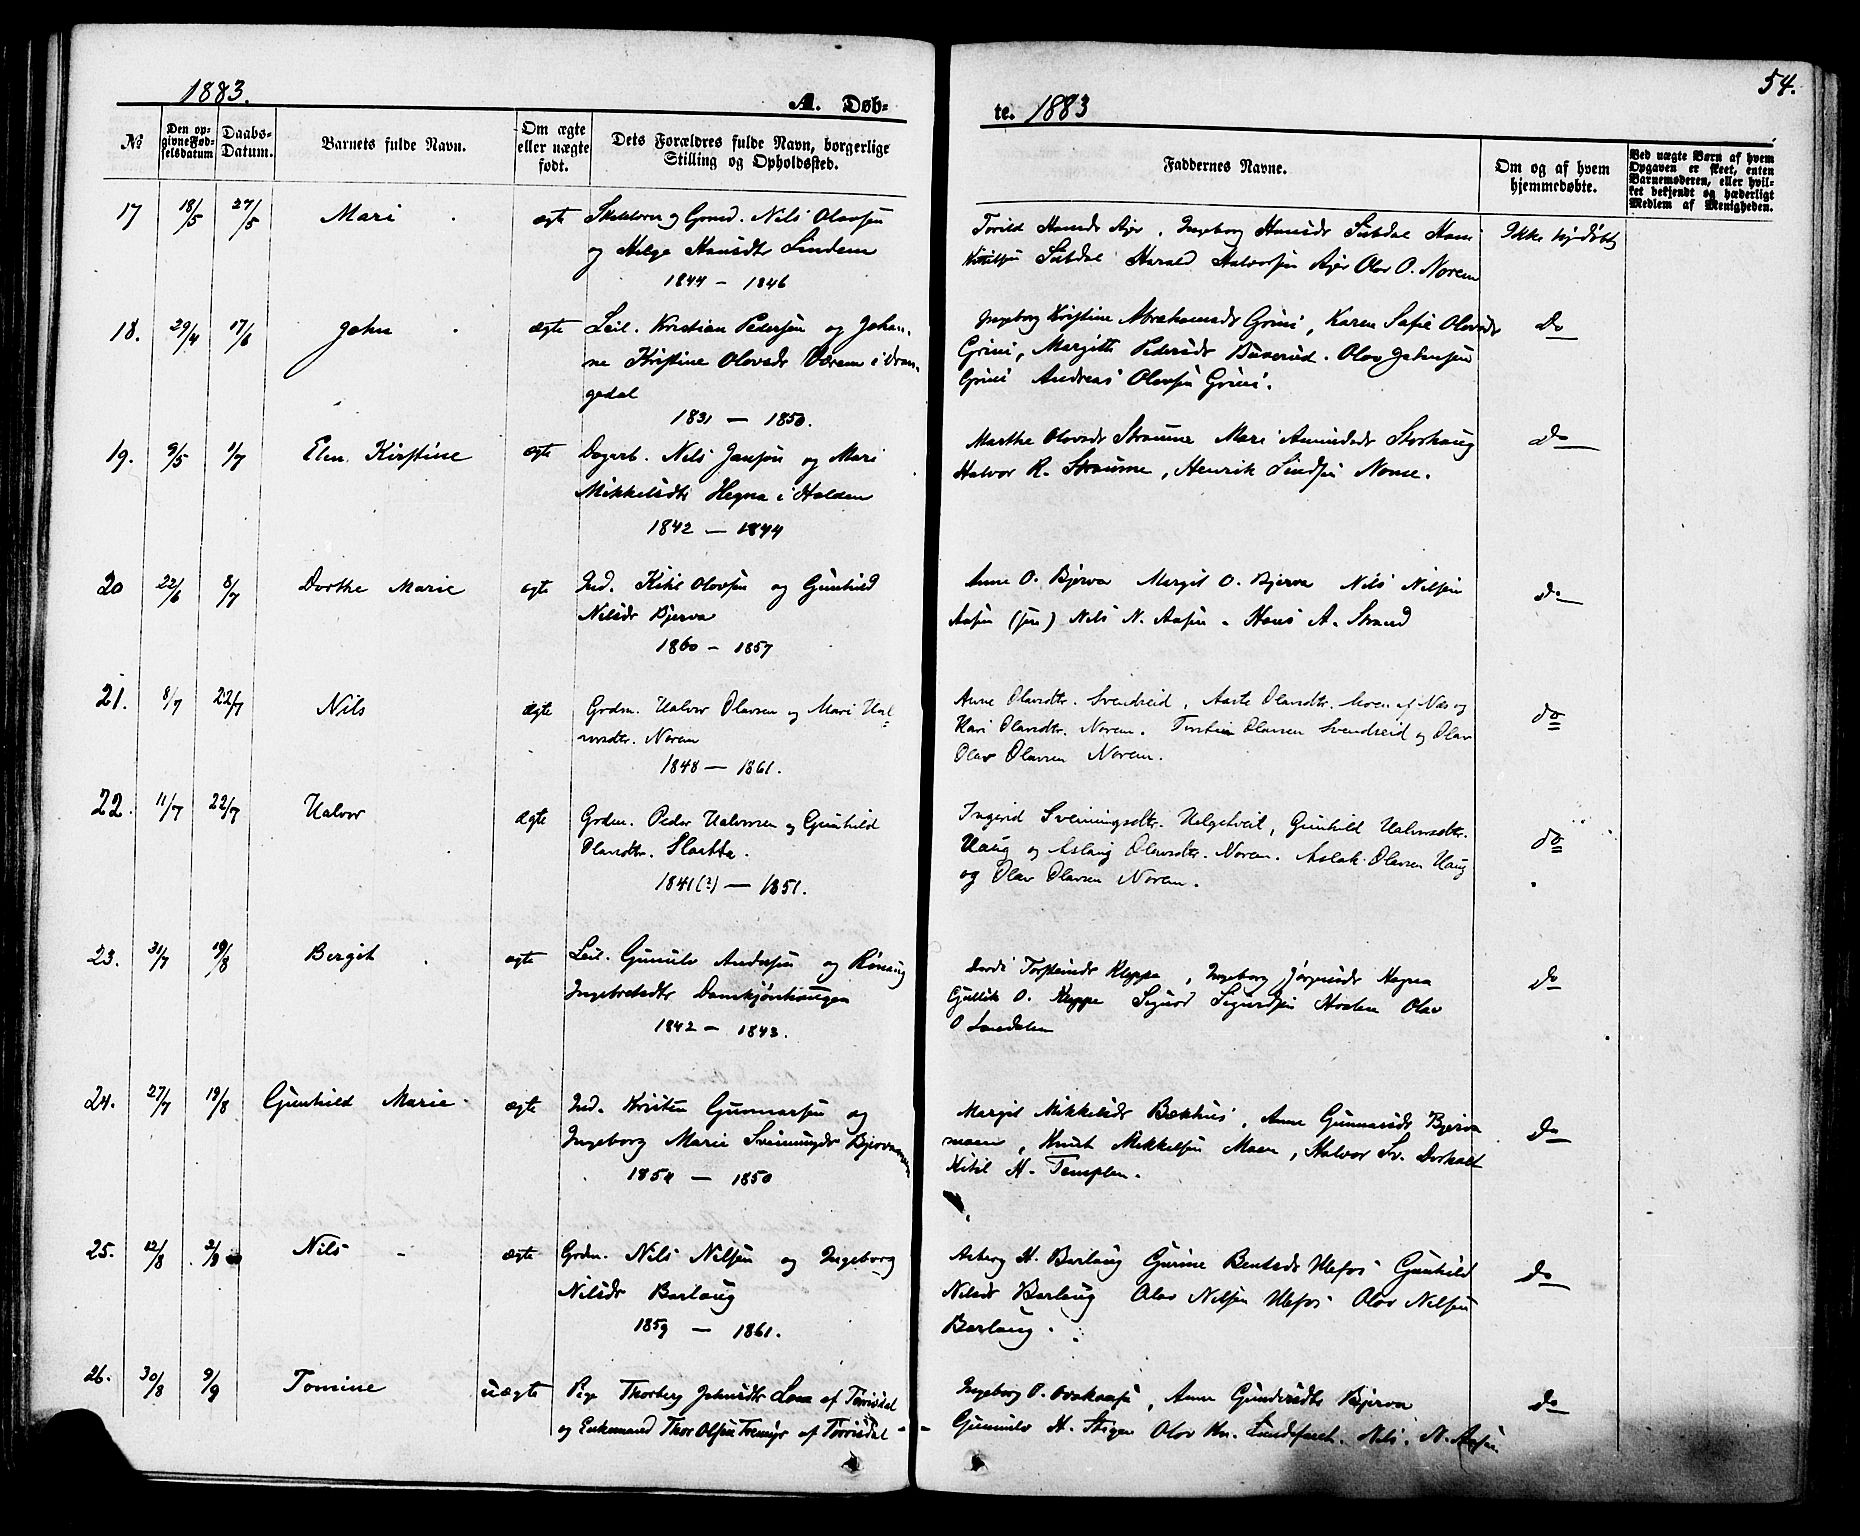 1883.
A. Døb-
te. 1883
54.
№
Den op-
givne Fød-
selsdatum
Daabs-
Datum.
Barnets fulde Navn.
Om ægte
eller uægte
født.
Dets Forældres fulde Navn, borgerlige
Stilling og Opholdssted.
Faddernes Navne.
Om og af hvem
hjemmedøbte.
Ved uægte Børn af hvem
Opgaven er skeet, enten
Barnemoderen, eller hvil-
ket bekjendt og hæderligt
Medlem af Menigheden.
17 18/5 27/5 Mari ægte og Gmd. Nils Olavsen
og Helge Hansdtr Lindem
1844 – 1846
Torild Hansdr Ajer, Ingeborg Hansdr Hans
Harald Halvorsen Ajer Olav O. Norem
Ikke hj.døbt
18. 29/4 17/6 John ægte Leil. Kristian Pedersen og Johan-
ne Kristine Olovsdr i Dran-
gedal
1831 – 1850.
Ingeborg Kristine Abrahamsdr Grini, Karen Sofie Olovsdr
Grini, Margitte Pedersdr Buserud. Olav Johnsen
Grini Andreas Olovsen Grini.
Do
19. 9/5 1/7 Elen Kirstine ægte Dagarb. Nils Jansen og Mari
Mikkelsdtr Hegna i Holden
1842 – 1844
Marthe Olovsdr Straume Mari Amundsdr Storhaug
Halvor R. Straume, Henrik Lindsen Nome.
Do
20 22/6 8/7 Dorthe Marie ægte Ind. Kitil Olovsen og Gunhild
Nilsdr Bjerva
1860 – 1857
Anne O. Bjerva Margit O. Bjerva Nils Nilsen
Aasen (jun) Nils N. Aasen. Hans A. Strand
Do
21. 8/7 22/7 Nils ægte Grdm. Halvor Olavsen og Mari Hal-
vorsdtr. Norem
1848 – 1861.
Anne Olavsdtr. Svendseid, Aaste Olavsdtr. Moen af Næs og
Kari Olavsdtr. Norem. Torstein Olavsen Svendseid og Olav
Olav Olavsen Norem.
do
22. 11/7 22/7 Halvor ægte Grdm. Peder Halvorsen og Gunhild
Olavsdtr. Slaatta.
1841(?) – 1851.
Ingerid Sveinungsdtr. Helgetveit, Gunhild Halvorsdtr.
Haug og Aslaug Olavsdtr. Norem. Aslak Olavsen Haug
og Olav Olavsen Norem.
do
23. 31/7 19/8 Bergit ægte Leil. Gunulv Andersen og Rønaug
Ingebretsdtr Damkjønhaugen
1842 – 1843.
Torsteinsdr Kleppe, Ingeborg Jørgensdr Hegna
Gjullik O. Kleppe Sigurd Sigurdsen Olav
O
Do
24. 27/7 19/8 Gunhild Marie ægte Ind. Kristen Gunnarsen og
Ingeborg Marie Sveinungsdr Bjervamoen
1854 – 1850
Margit Mikkelsdr Bækhus, Anne Gunnarsdr Bjerva
moen, Knut Mikkelsen Moen, Halvor Sv. Dorholt
Kitil H. Templen.
Do
25. 12/8 2/9 Nils ægte Grdm. Nils Nilsen og Ingeborg
Nilsdr Barlaug
1859 – 1861.
Asberg H. Barlaug Gurine Bentsdr Ulefos Gunhild
Nilsdr Barlaug Olav Nilsen Ulefos Olov Nilsen
Barlaug.
Do
26. 30/8 9/9 Tomine uægte Pige Thorberg Johnsdtr Lona af Tørrisdal
og Enkemand Thor Olsen Tvenyr af Tørrisdal
Ingeborg O. Anne Gundersdtr Bjerva
Gunnulv H. Stigen Olov Kn. Lundefaret. Nils. N. Aasen
Do